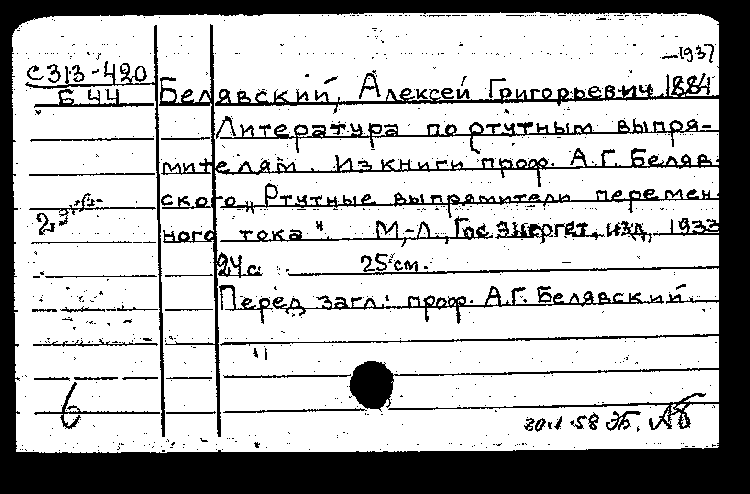 —1937
С313-420
Б 44
Белявский, Алексей Григорьевич, 1884
Литература по ртутным выпря-
мителям. Из книги проф. А.Г. Беляв-
ского „Ртутные выпрямители перемен-
ного тока". М.-Л., Гос. энергет. изд, 1933
24с. 25см.
Перед загл.: проф. А.Г. Белявский.
6
30.1.58 ЭБ. АБ